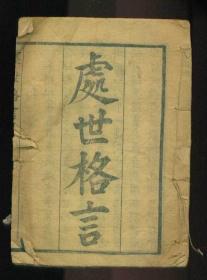 處世格言